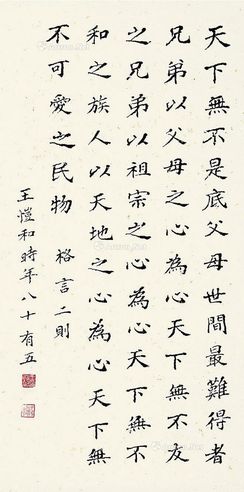 天下無不是底父母世間最難得者
兄弟以父母之心為心天下無不友
之兄弟以祖宗之心為心天下無不
和之族人以天地之心為心天下無
不可愛之民物　格言二則
王愷和時年八十有五